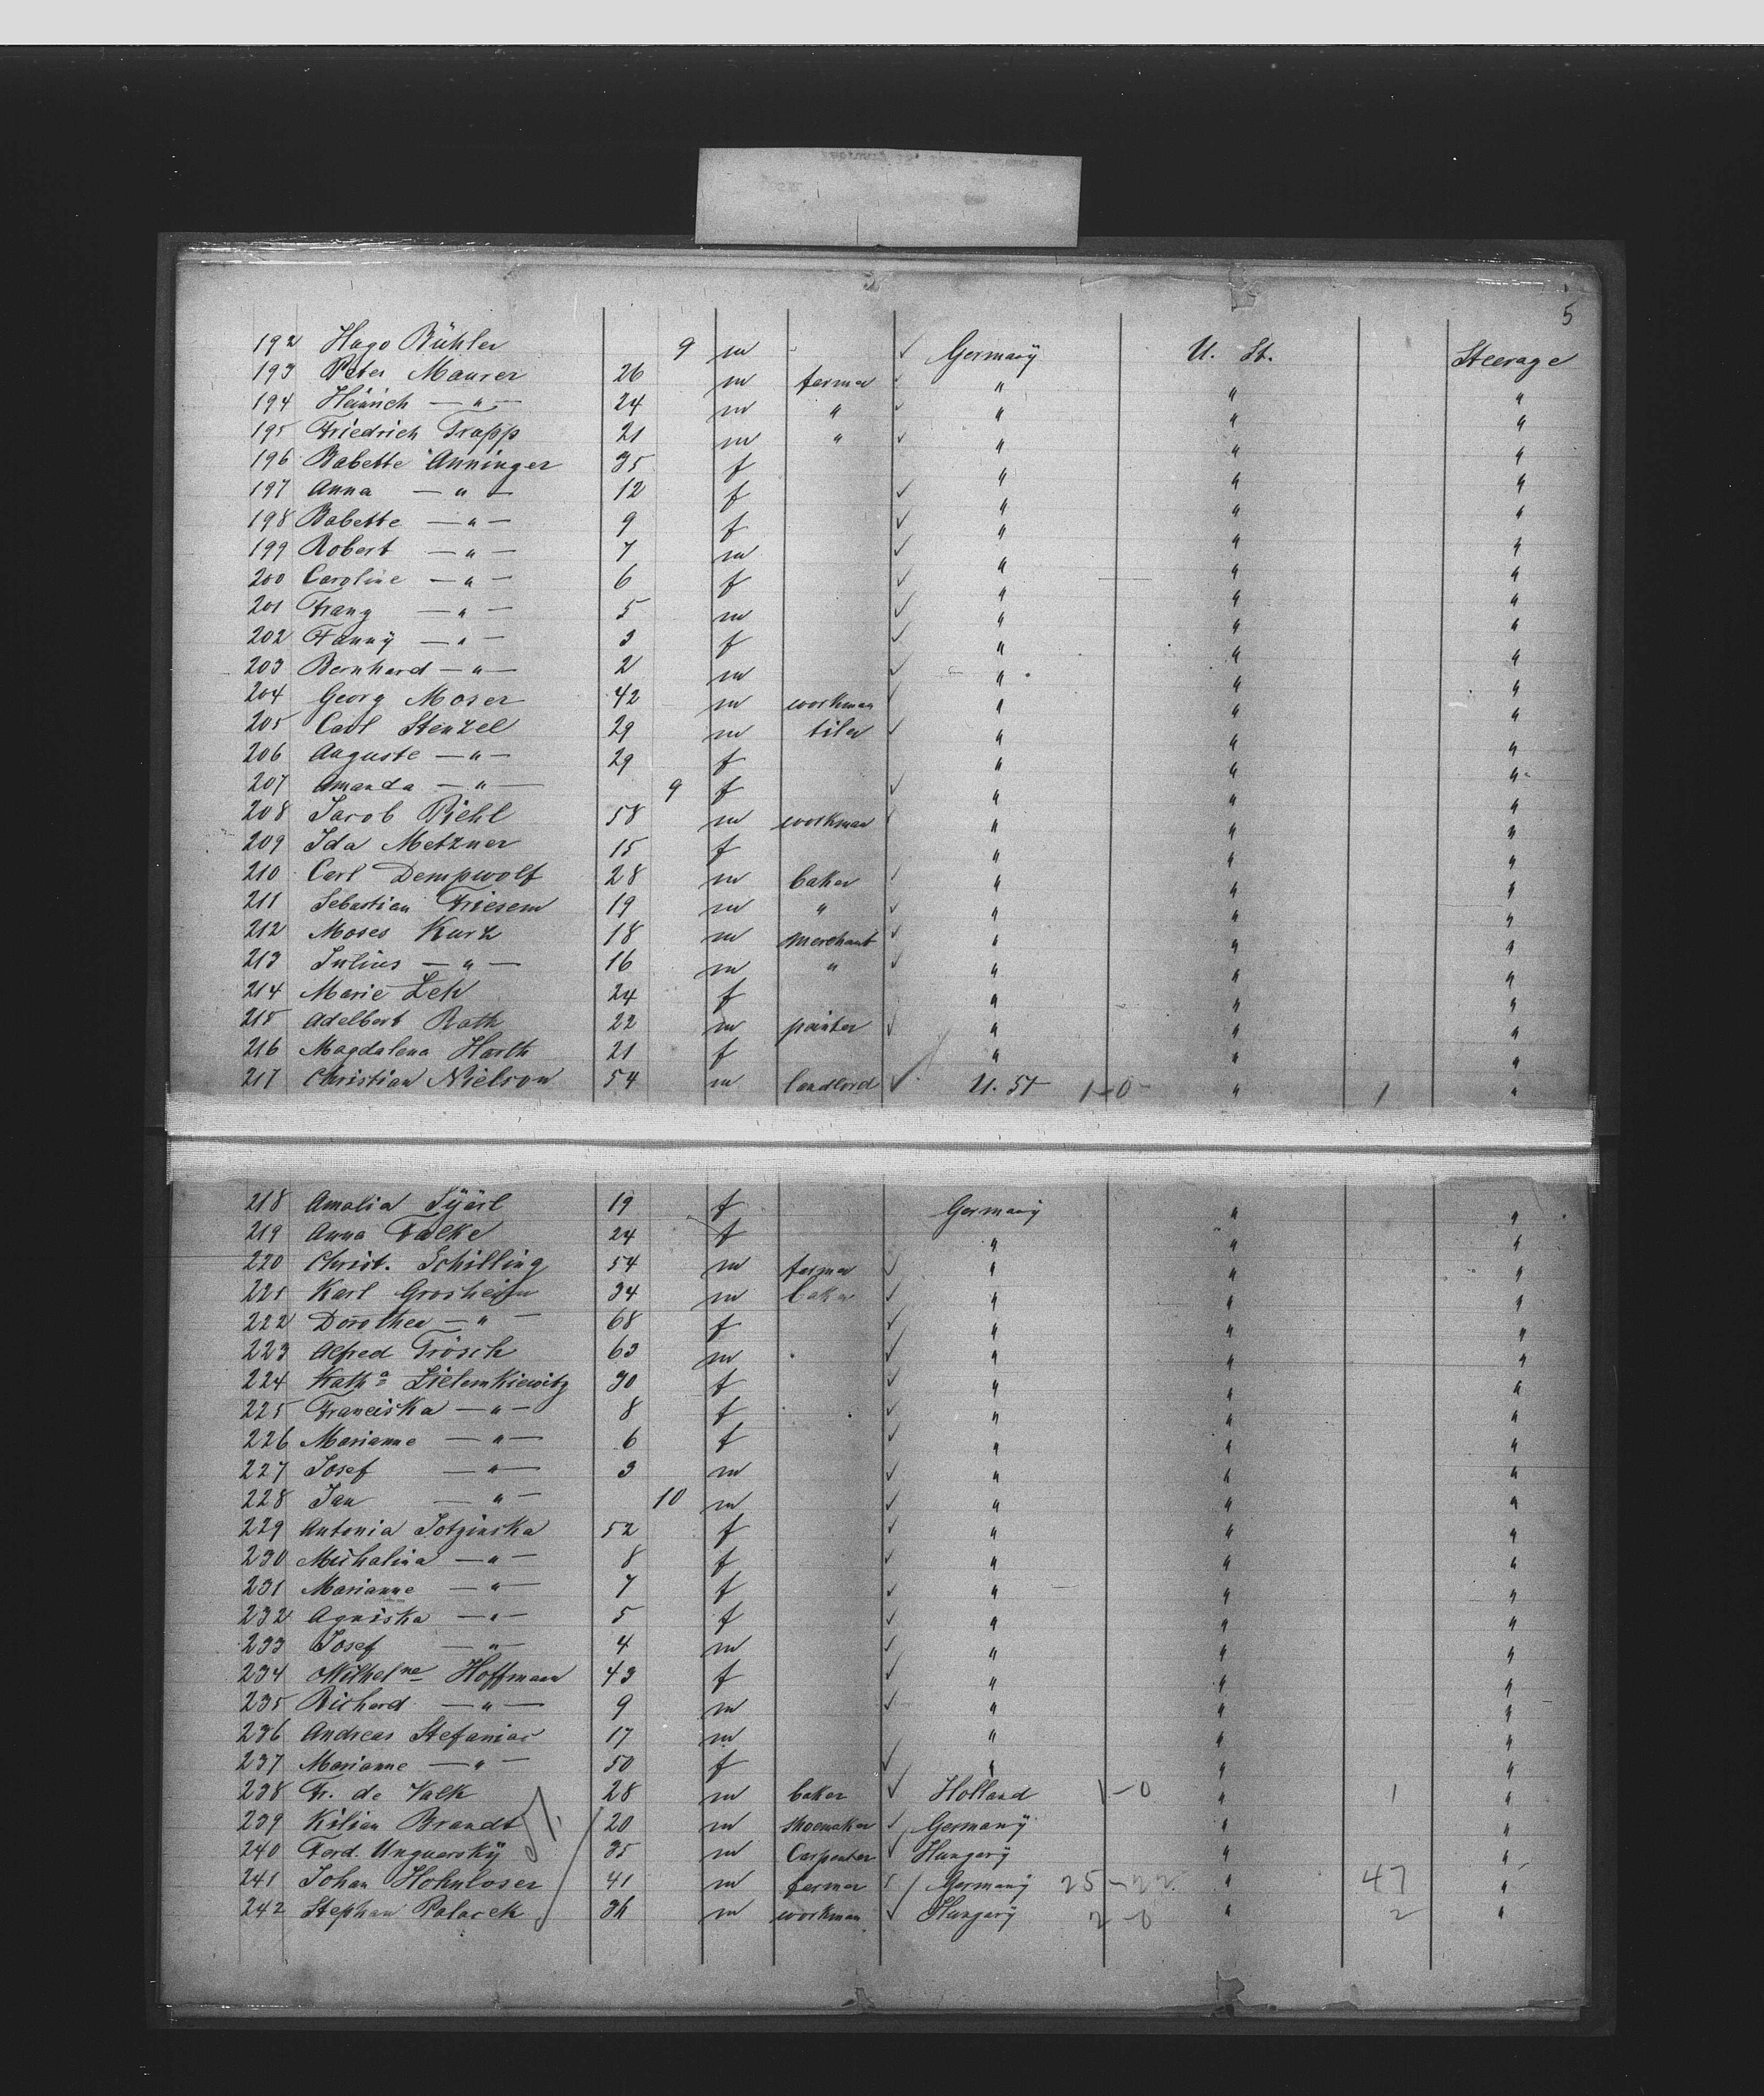 5
192 Hugo Bühler 9 m Germany U. St. Steerage
193 Peter Maurer 26 m farmer " " "
194 Heinrich — " — 24 m " " " "
195 Friedrich Trapp 21 m " " " "
196 Babette Anninger 35 f " " "
197 Anna — " — 12 f " " "
198 Babette — " — 9 f " " "
199 Robert — " — 7 m " " "
200 Caroline — " — 6 f " " "
201 Franz — " — 5 m " " "
202 Fanny — " — 3 f " " "
203 Bernhard — " — 2 m " " "
204 Georg Moser 42 m workman " " "
205 Carl Stenzel 29 m tiler " " "
206 Auguste — " — 29 f " " "
207 Amanda — " — 9 f " " "
208 Jacob Piehl 58 m workman " " "
209 Ida Metzner 15 f " " "
210 Carl Dempwolf 28 m baker " " "
211 Sebastian Friesem 19 m " " " "
212 Moses Kurz 18 m merchant " " "
213 Julius — " — 16 m " " " "
214 Marie Leh 24 f " " "
215 Adelbert Rath 22 m painter " " "
216 Magdalena Harth 21 f " " "
217 Christian Nielson 54 m landlord U. St 1-0 " 1 "
218 Amalia 19 f Germany " "
219 Anna Falke 24 f " " "
220 Christ. Schilling 54 m farmer " " "
221 Karl Grosheim 34 m baker " " "
222 Dorothea — " — 68 f " " "
223 Alfred Trösch 63 m " " "
224 Katha Zielemkiewitz 30 f " " "
225 Franciska — " — 8 f " " "
226 Marianne — " — 6 f " " "
227 Josef — " — 3 m " " "
228 Jan — " — 10 m " " "
229 Antonia 52 f " " "
230 Michalina — " — 8 f " " "
231 Marianne — " — 7 f " " "
232 Agniska — " — 5 f " " "
233 Josef — " — 4 m " " "
234 Wilhelne Hoffmann 43 f " " "
235 Richard — " — 9 m " " "
236 Andreas Stefaniac 17 m " " "
237 Marianne — " — 50 f " " "
238 Fr. de Valk 28 m baker Holland 1-0 " 1 "
239 Kilian Brandt 20 m shoemaker Germany " "
240 Ferd. Unguersky 35 m Carpenter Hungary " "
241 Johan Hohnloser 41 m farmer Germany 25-22 " 47 "
242 Stephan Palacek 36 m workman Hungary 2-0 " 2 "